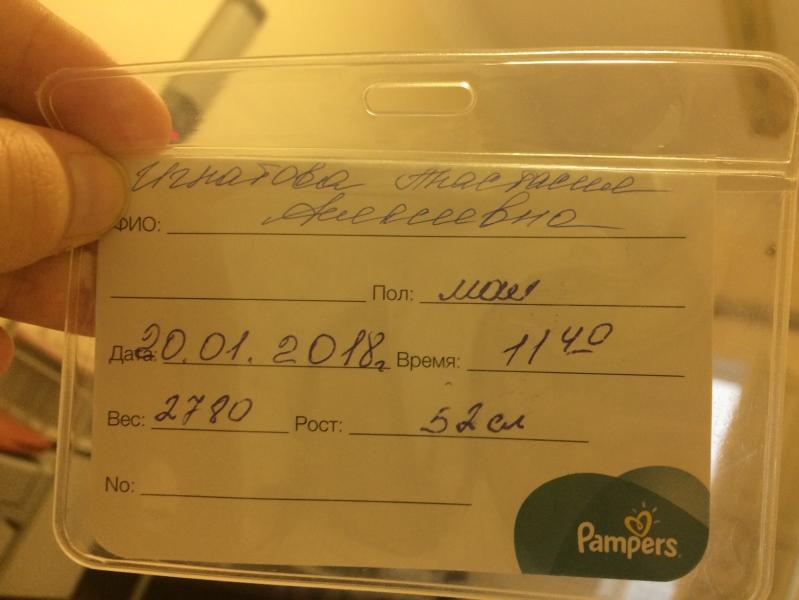 Игнатова Анастасия
ФИО: Алексеевна
Пол: мал
Дата: 20.01.2018г Время: 11 40
Вес: 2780 Рост: 52 см
No:
Pampers